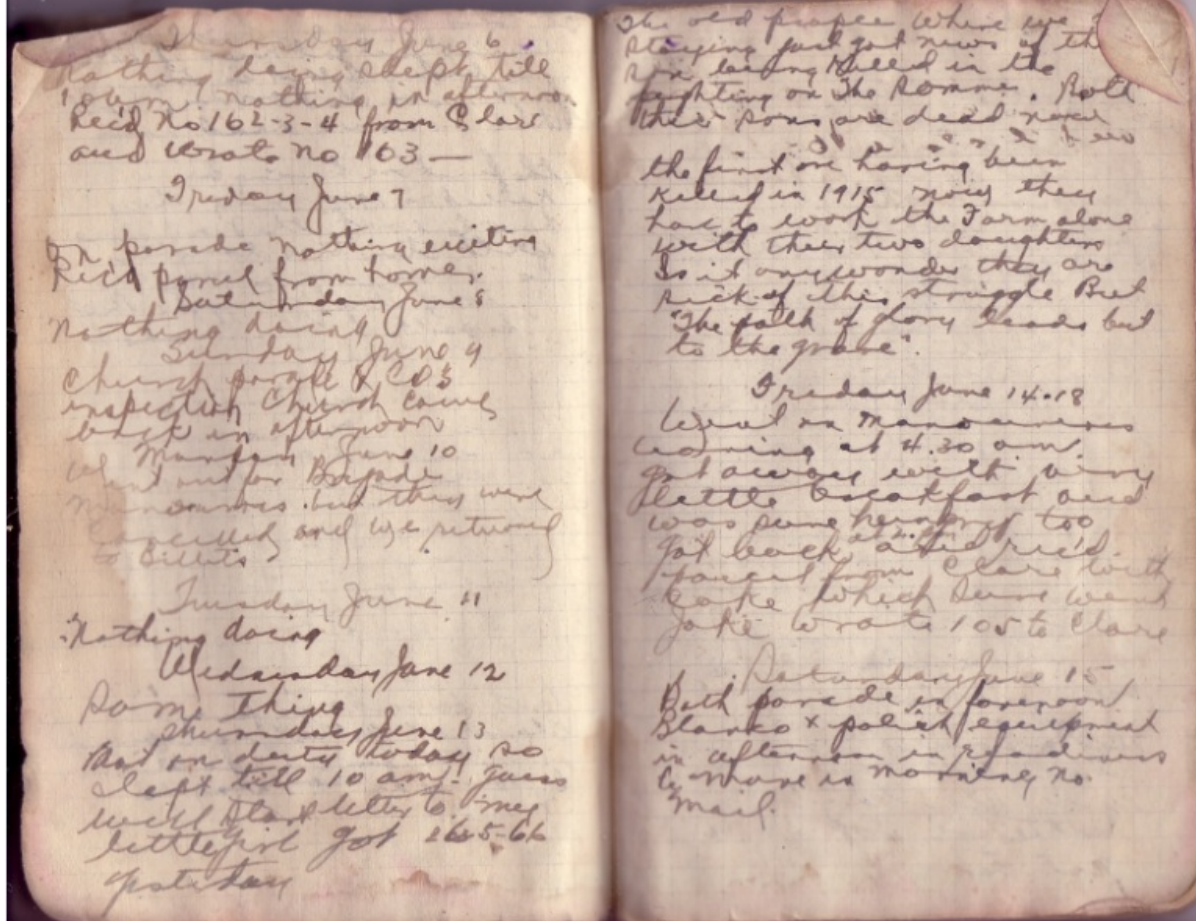 Thursday June 6
Nothing doing slept till
nothing in afternoon
Rec'd No 162-3-4 from Clare
and wrote no 103 —
Friday June 7
On parade nothing exciting
Rec'd parcel from home.
Saturday June 8
Nothing doing
Sunday June 9
Church parade & CO's
inspection Church
back in afternoon
Monday June 10
Went out for Brigade
Manouvres but they were
cancelled and we returned
to Billets
Tuesday June 11
Nothing doing
Wednesday June 12
Same thing
Thursday June 13
Not on duty today so
slept till 10 am. guess
will start letter to my
little girl got 165-66
yesterday
The old people where we
staying just got news of the
son being killed in the
fighting on The Somme. Both
their sons are dead now
the first one having been
killed in 1915 now they
have to work the Farm alone
with their two daughters
Is it any wonder they are
sick of this struggle But
"The path of glory leads but
to the grave".
Friday June 14.18
Went on Manouvres
at 4.30 a.m.
got away with very
little breakfast and
was some hungry too
got back at and rec'd
parcel from Clare with
cake which sure went
wrote 105 to Clare
Saturday June 15
Bath parade in forenoon
Blanko & polish equipment
in afternoon in readiness
to move in morning no
mail.